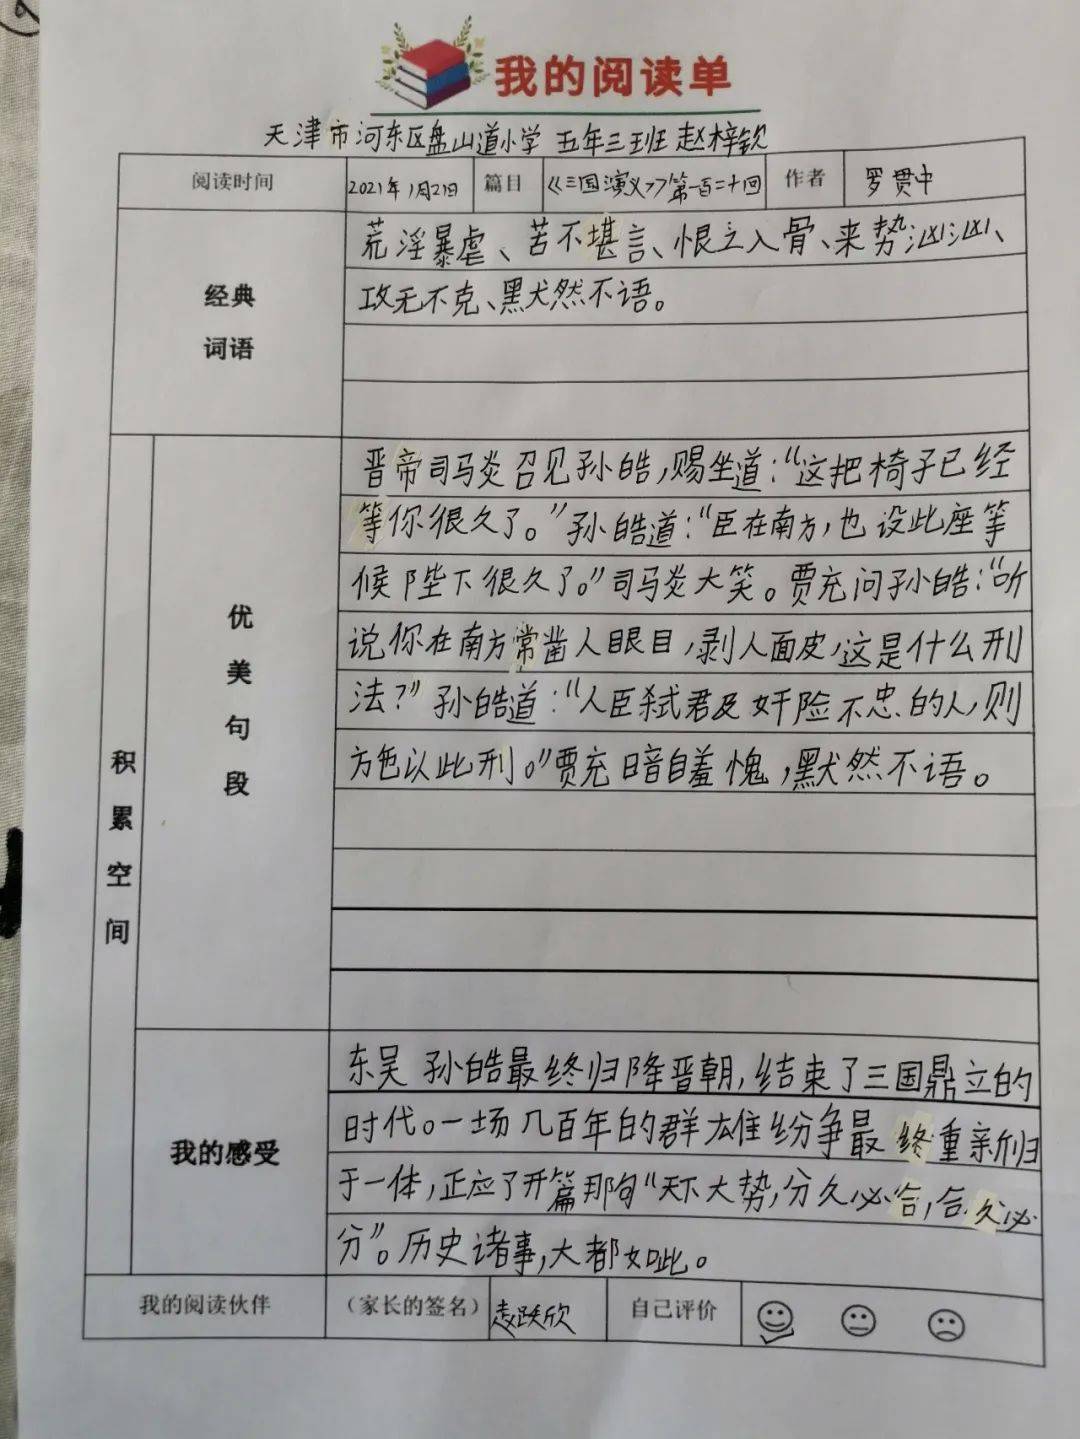 我的阅读单
天津市河东区盘山道小学 五年三班 赵梓钦
阅读时间 2021年1月21日 篇目 《三国演义》第一百二十回 作者 罗贯中
经典
词语
荒淫暴虐、苦不堪言、恨之入骨、来势汹汹、
攻无不克、默然不语。
积累空间
优美句段
晋帝司马炎召见孙皓,赐坐道:“这把椅子已经
等你很久了。”孙皓道:“臣在南方,也设此座等
候陛下很久了。”司马炎大笑。贾充问孙皓:“听
说你在南方常凿人眼目,剥人面皮,这是什么刑
法?”孙皓道:“人臣弑君及奸险不忠的人,则
方色以此刑。”贾充暗自羞愧,默然不语。
我的感受
东吴孙皓最终归降晋朝,结束了三国鼎立的
时代。一场几百年的群雄纷争最终重新归
于一体,正应了开篇那句“天下大势,分久必合,合久必
分”。历史诸事,大都如此。
我的阅读伙伴 (家长的签名) 自己评价